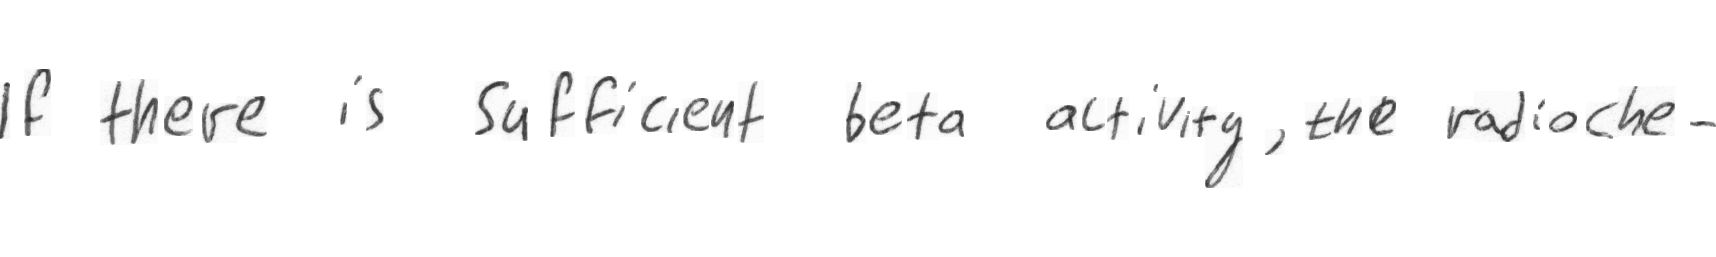 If there is sufficient beta activity, the radioche-